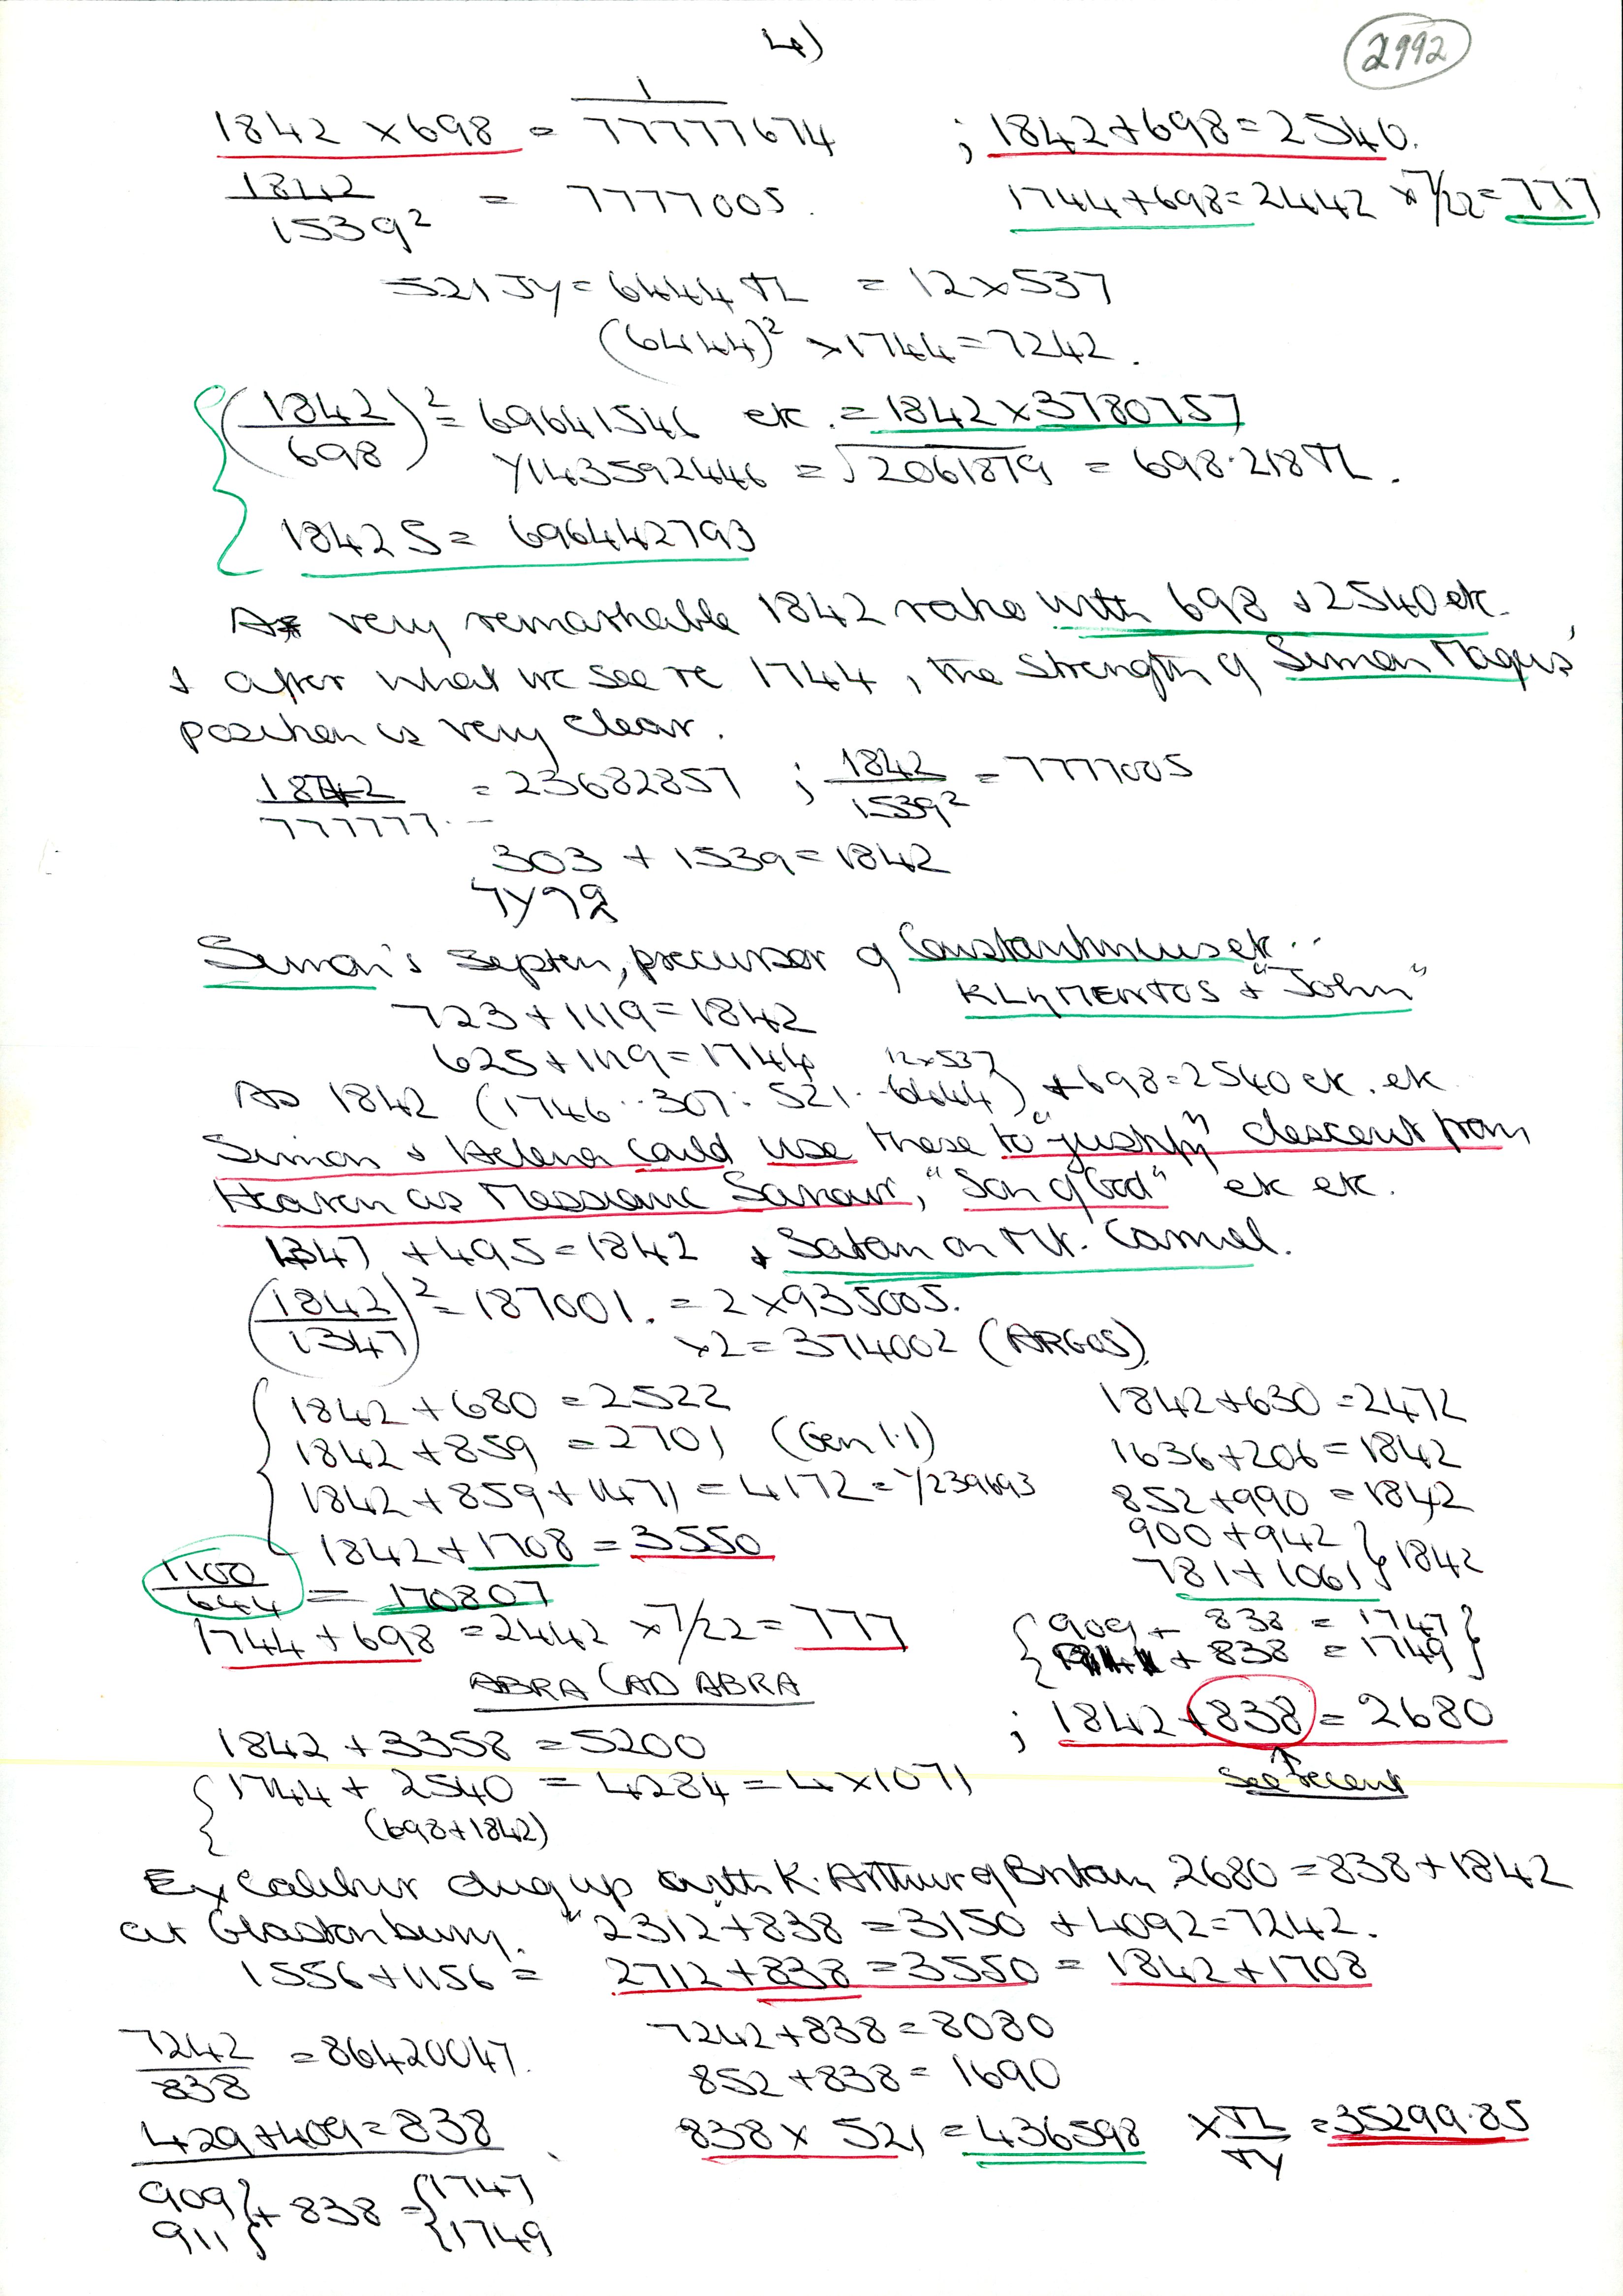 4)
2992
1842 × 698 = 1/77777674 ; 1842+698=2540.
1842/1539² = 7777005. 1744+698=2442 ×7/22=777
521 JY = 6444 TL = 12×537
(6444)² ×1744=7242.
(1842/698)² = 69641546 etc. = 1842×3780757
Y/143592446 = √2061879 = 698·218TL.
1842 S = 696442793
A very remarkable 1842 ratio with 698 & 2540 etc.
& after what we see re 1744, the strength of Simon Magus'
position is very clear.
1842/777777.. = 23682857 ; 1842/1539² = 7777005
303 + 1539 = 1842
Simon's Septen, precursor of Constantinus etc..
KLYMENTOS & "John"
723+1119=1842
625+1119=1744
12×537
As 1842 (1746..307: 521..6444) +698=2540 etc. etc
Simon & Helena could use these to "justify" descent from
Heaven as Messianic Saviour, "Son of God" etc etc.
1347 +495=1842 & Satan on Mt. Carmel.
(1842/1347)² = 187001. = 2×935005.
×2=374002 (ARGOS)
1842+680 =2522 1842+630=2472
1842+859 =2701 (Gen 1·1) 1636+206=1842
1842+859+1471=4172=Y/239693 852+990=1842
1842+1708=3550 900+942 } 1842
781+1061
1100/644 = 170807
1744+698=2442 ×7/22=777 909+ 838=1747
+838=1749
ABRA CAD ABRA
1842+3358=5200 ; 1842+838=2680
1744+2540=4284=4×1071 see recent
(698+1842)
Excalibur dug up with K. Arthur of Britain 2680=838+1842
at Glastonbury. 2312+838=3150 +4092=7242.
1556+1156= 2712+838=3550=1842+1708
7242/838 =86420047. 7242+838=8080
852+838=1690
429+409=838 838× 521=436598 ×TL/TY =35299·85
909
911 } + 838 = { 1747
1749